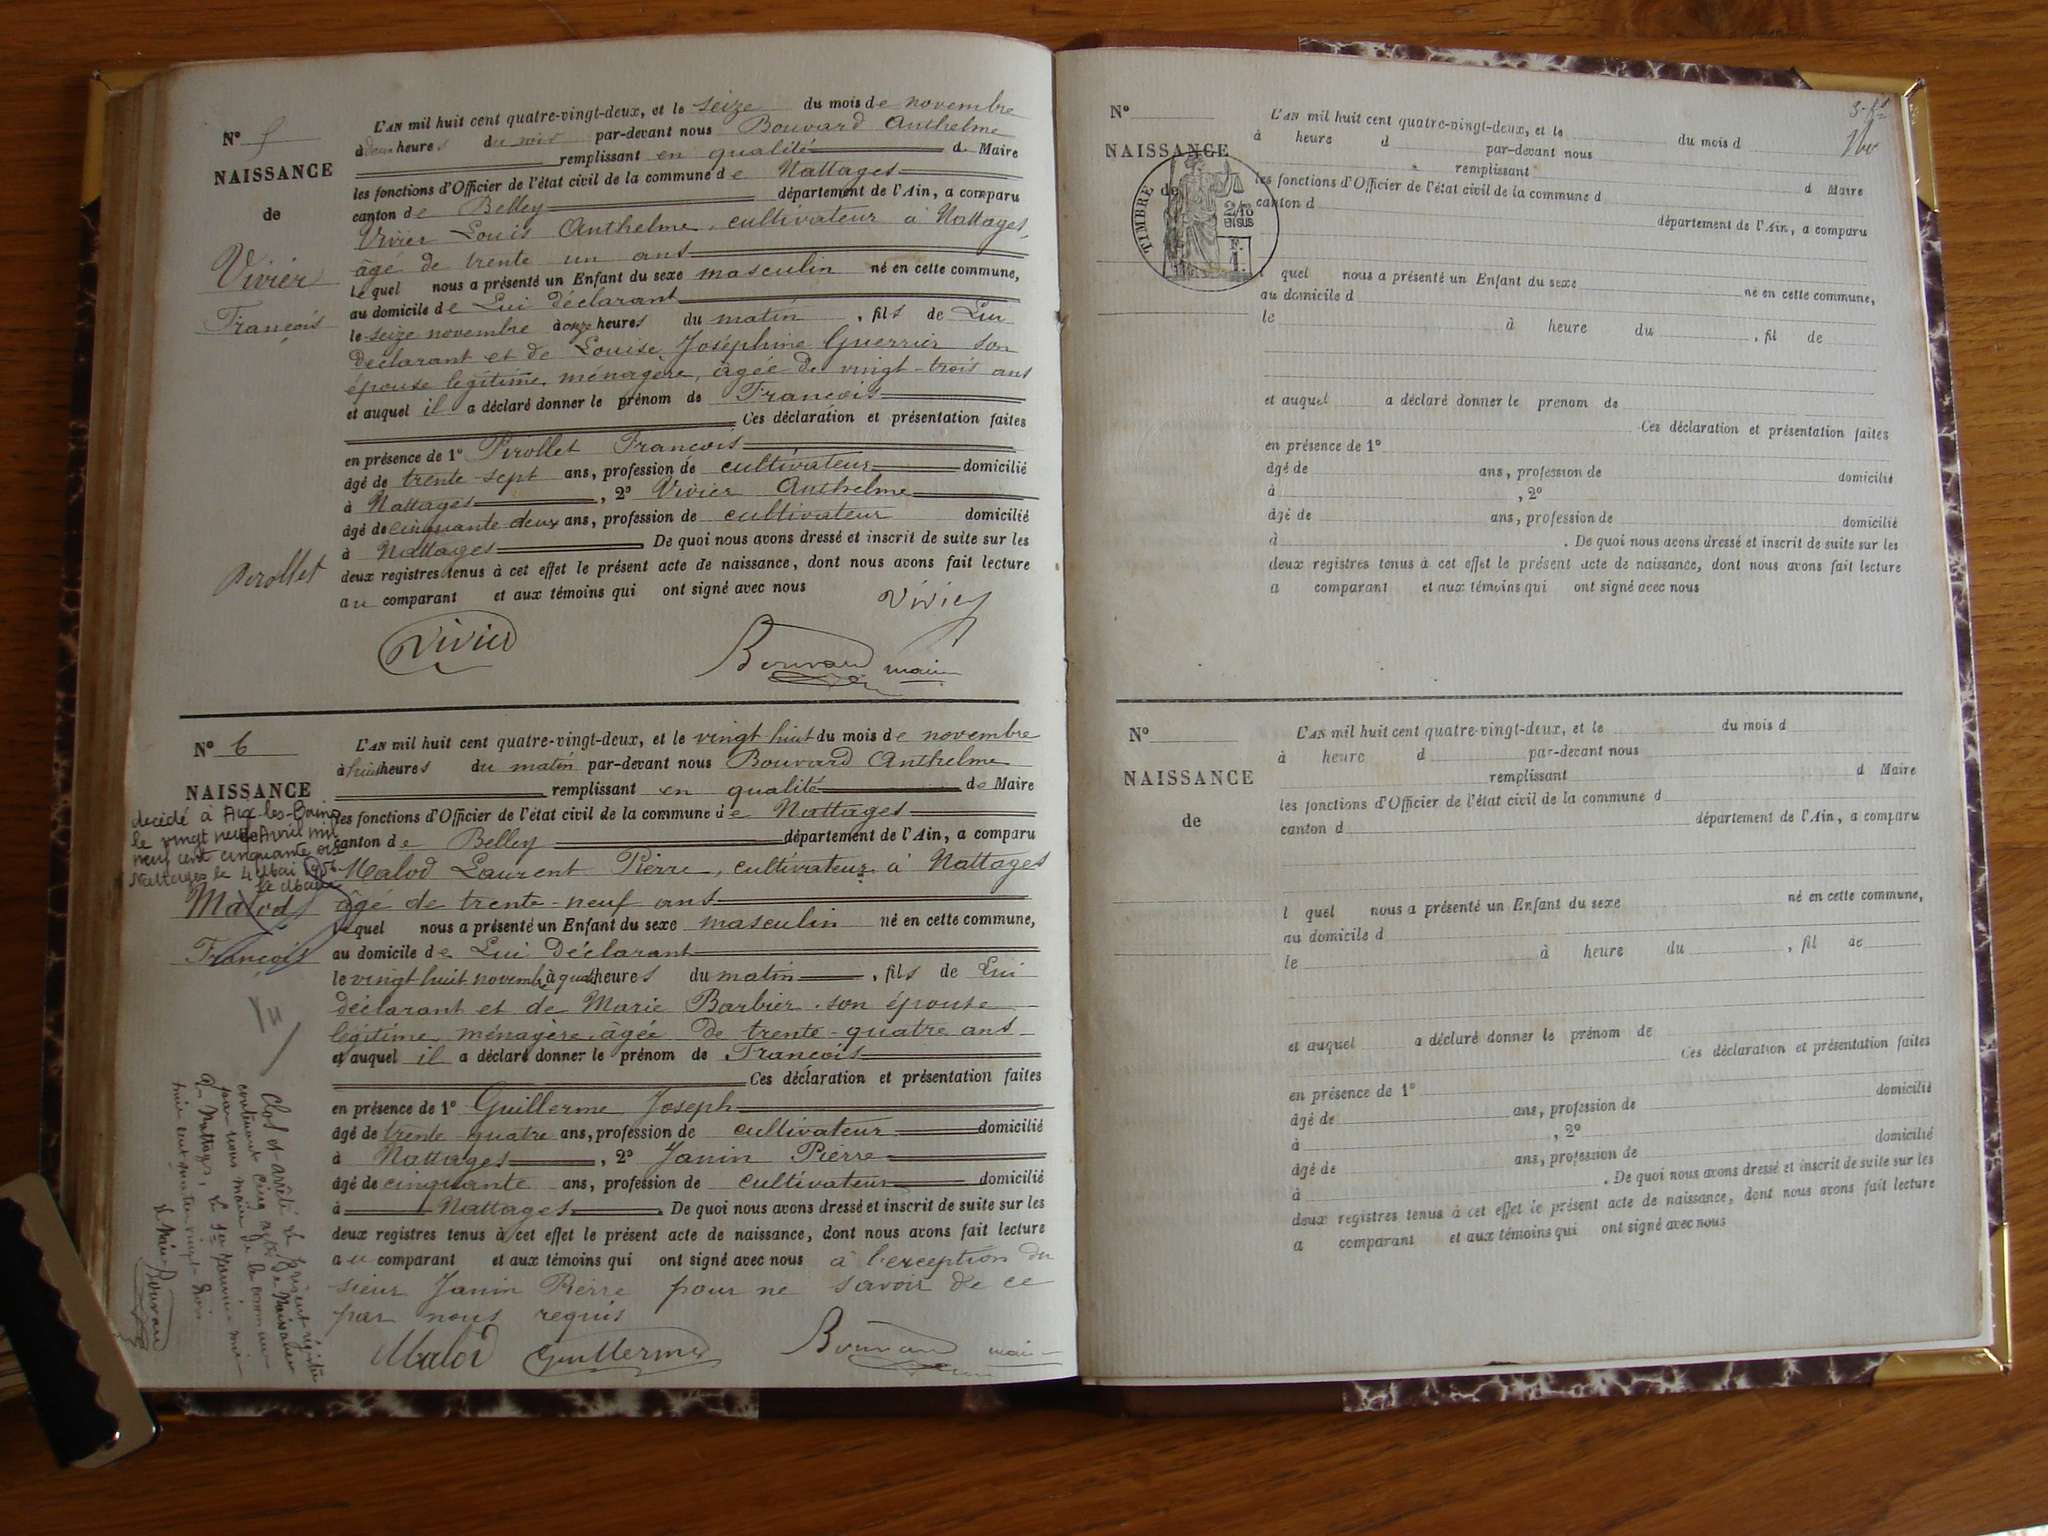 N° 5
NAISSANCE
de
Vivier
François
L'AN mil huit cent quatre-vingt-deux, et le seize du mois de novembre
à deux heures du soir par-devant nous Bouvard Anthelme
remplissant en qualité de Maire
les fonctions d'Officier de l'état civil de la commune de Nattages
canton de Belley département de l'Ain, a comparu
Vivier Louis Anthelme, cultivateur à Nattages,
âgé de trente un ans
lequel nous a présenté un Enfant du sexe masculin né en cette commune,
au domicile de Lui déclarant
le seize novembre à onze heures du matin, fils de Lui
déclarant et de Louise Joséphine Guerrier son
épouse légitime, ménagère, âgée de vingt-trois ans
et auquel il a déclaré donner le prénom de François
Ces déclaration et présentation faites
en présence de 1° Pirollet François
âgé de trente-sept ans, profession de cultivateur domicilié
à Nattages, 2° Vivier Anthelme
âgé de cinquante deux ans, profession de cultivateur domicilié
à Nattages De quoi nous avons dressé et inscrit de suite sur les
deux registres tenus à cet effet le présent acte de naissance, dont nous avons fait lecture
au comparant et aux témoins qui ont signé avec nous
Pirollet
Vivier
Vivier
Bouvard maire
N° 6
NAISSANCE
décédé à Aix-les-Bains
le vingt neuf Avril mil
neuf cent cinquante six
Nattages le 4 Mai 1956
Le Maire
Malod
François
L'AN mil huit cent quatre-vingt-deux, et le vingt huit du mois de novembre
à huit heures du matin par-devant nous Bouvard Anthelme
remplissant en qualité de Maire
les fonctions d'Officier de l'état civil de la commune de Nattages
canton de Belley département de l'Ain, a comparu
Malod Laurent Pierre, cultivateur à Nattages
âgé de trente-neuf ans
lequel nous a présenté un Enfant du sexe masculin né en cette commune,
au domicile de Lui Déclarant
le vingt huit novembre à quatre heures du matin, fils de Lui
déclarant et de Marie Barbier, son épouse
légitime, ménagère, âgée de trente-quatre ans
et auquel il a déclaré donner le prénom de François
Ces déclaration et présentation faites
en présence de 1° Guillerme Joseph
âgé de trente quatre ans, profession de cultivateur domicilié
à Nattages, 2° Janin Pierre
âgé de cinquante ans, profession de cultivateur domicilié
à Nattages De quoi nous avons dressé et inscrit de suite sur les
deux registres tenus à cet effet le présent acte de naissance, dont nous avons fait lecture
au comparant et aux témoins qui ont signé avec nous à l'exception du
sieur Janin Pierre pour ne savoir de ce
par nous requis
Malod Guillerme Bouvard maire
Clos et arrêté le présent régistre
contenant cinq actes de Naissances
par nous maire de la commune
de Nattages, le 1er Janvier mil
huit cent quatre-vingt-trois
le Maire Bouvard
N°
NAISSANCE
de
TIMBRE
2/10
EN SUS
F.
1.
L'AN mil huit cent quatre-vingt-deux, et le du mois d
à heure d par-devant nous
remplissant
d Maire
les fonctions d'Officier de l'état civil de la commune d
canton d département de l'Ain, a comparu
l quel nous a présenté un Enfant du sexe né en cette commune,
au domicile d
le à heure du , fil de
et auquel a déclaré donner le prénom de
Ces déclaration et présentation faites
en présence de 1°
âgé de ans, profession de domicilié
à , 2°
âgé de ans, profession de domicilié
à . De quoi nous avons dressé et inscrit de suite sur les
deux registres tenus à cet effet le présent acte de naissance, dont nous avons fait lecture
a comparant et aux témoins qui ont signé avec nous
N°
NAISSANCE
de
L'AN mil huit cent quatre-vingt-deux, et le du mois d
à heure d par-devant nous
remplissant d Maire
les fonctions d'Officier de l'état civil de la commune d
canton d département de l'Ain, a comparu
l quel nous a présenté un Enfant du sexe né en cette commune,
au domicile d
le à heure du , fil de
et auquel a déclaré donner le prénom de
Ces déclaration et présentation faites
en présence de 1° domicilié
âgé de ans, profession de
à , 2° domicilié
âgé de ans, profession de
à . De quoi nous avons dressé et inscrit de suite sur les
deux registres tenus à cet effet le présent acte de naissance, dont nous avons fait lecture
a comparant et aux témoins qui ont signé avec nous